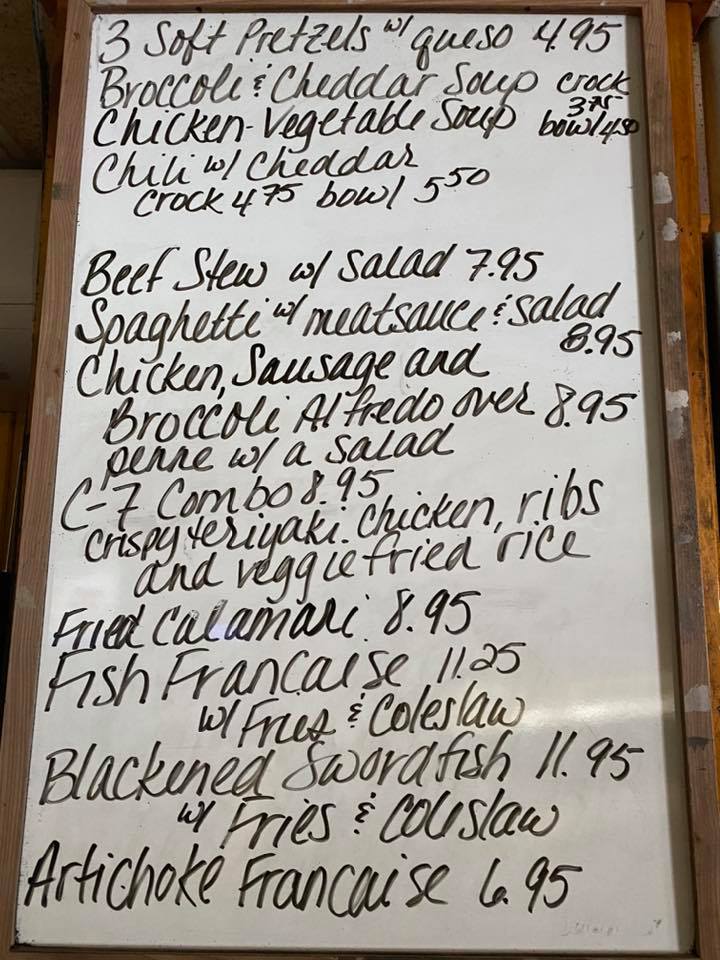 3 Soft Pretzels w/ queso 4.95
Broccoli & Cheddar Soup crock 3.75
Chicken-Vegetable Soup bowl 4.50
Chili w/ Cheddar
crock 4.75 bowl 5.50
Beef Stew w/ Salad 7.95
Spaghetti w/ meatsauce & Salad
8.95
Chicken, Sausage and
Broccoli Alfredo over 8.95
penne w/ a Salad
C-7 Combo 8.95
crispy teriyaki chicken, ribs
and veggie fried rice
Fried Calamari 8.95
Fish Francaise 11.25
w/ Fries & Coleslaw
Blackened Swordfish 11.95
w/ Fries & Coleslaw
Artichoke Francaise 6.95